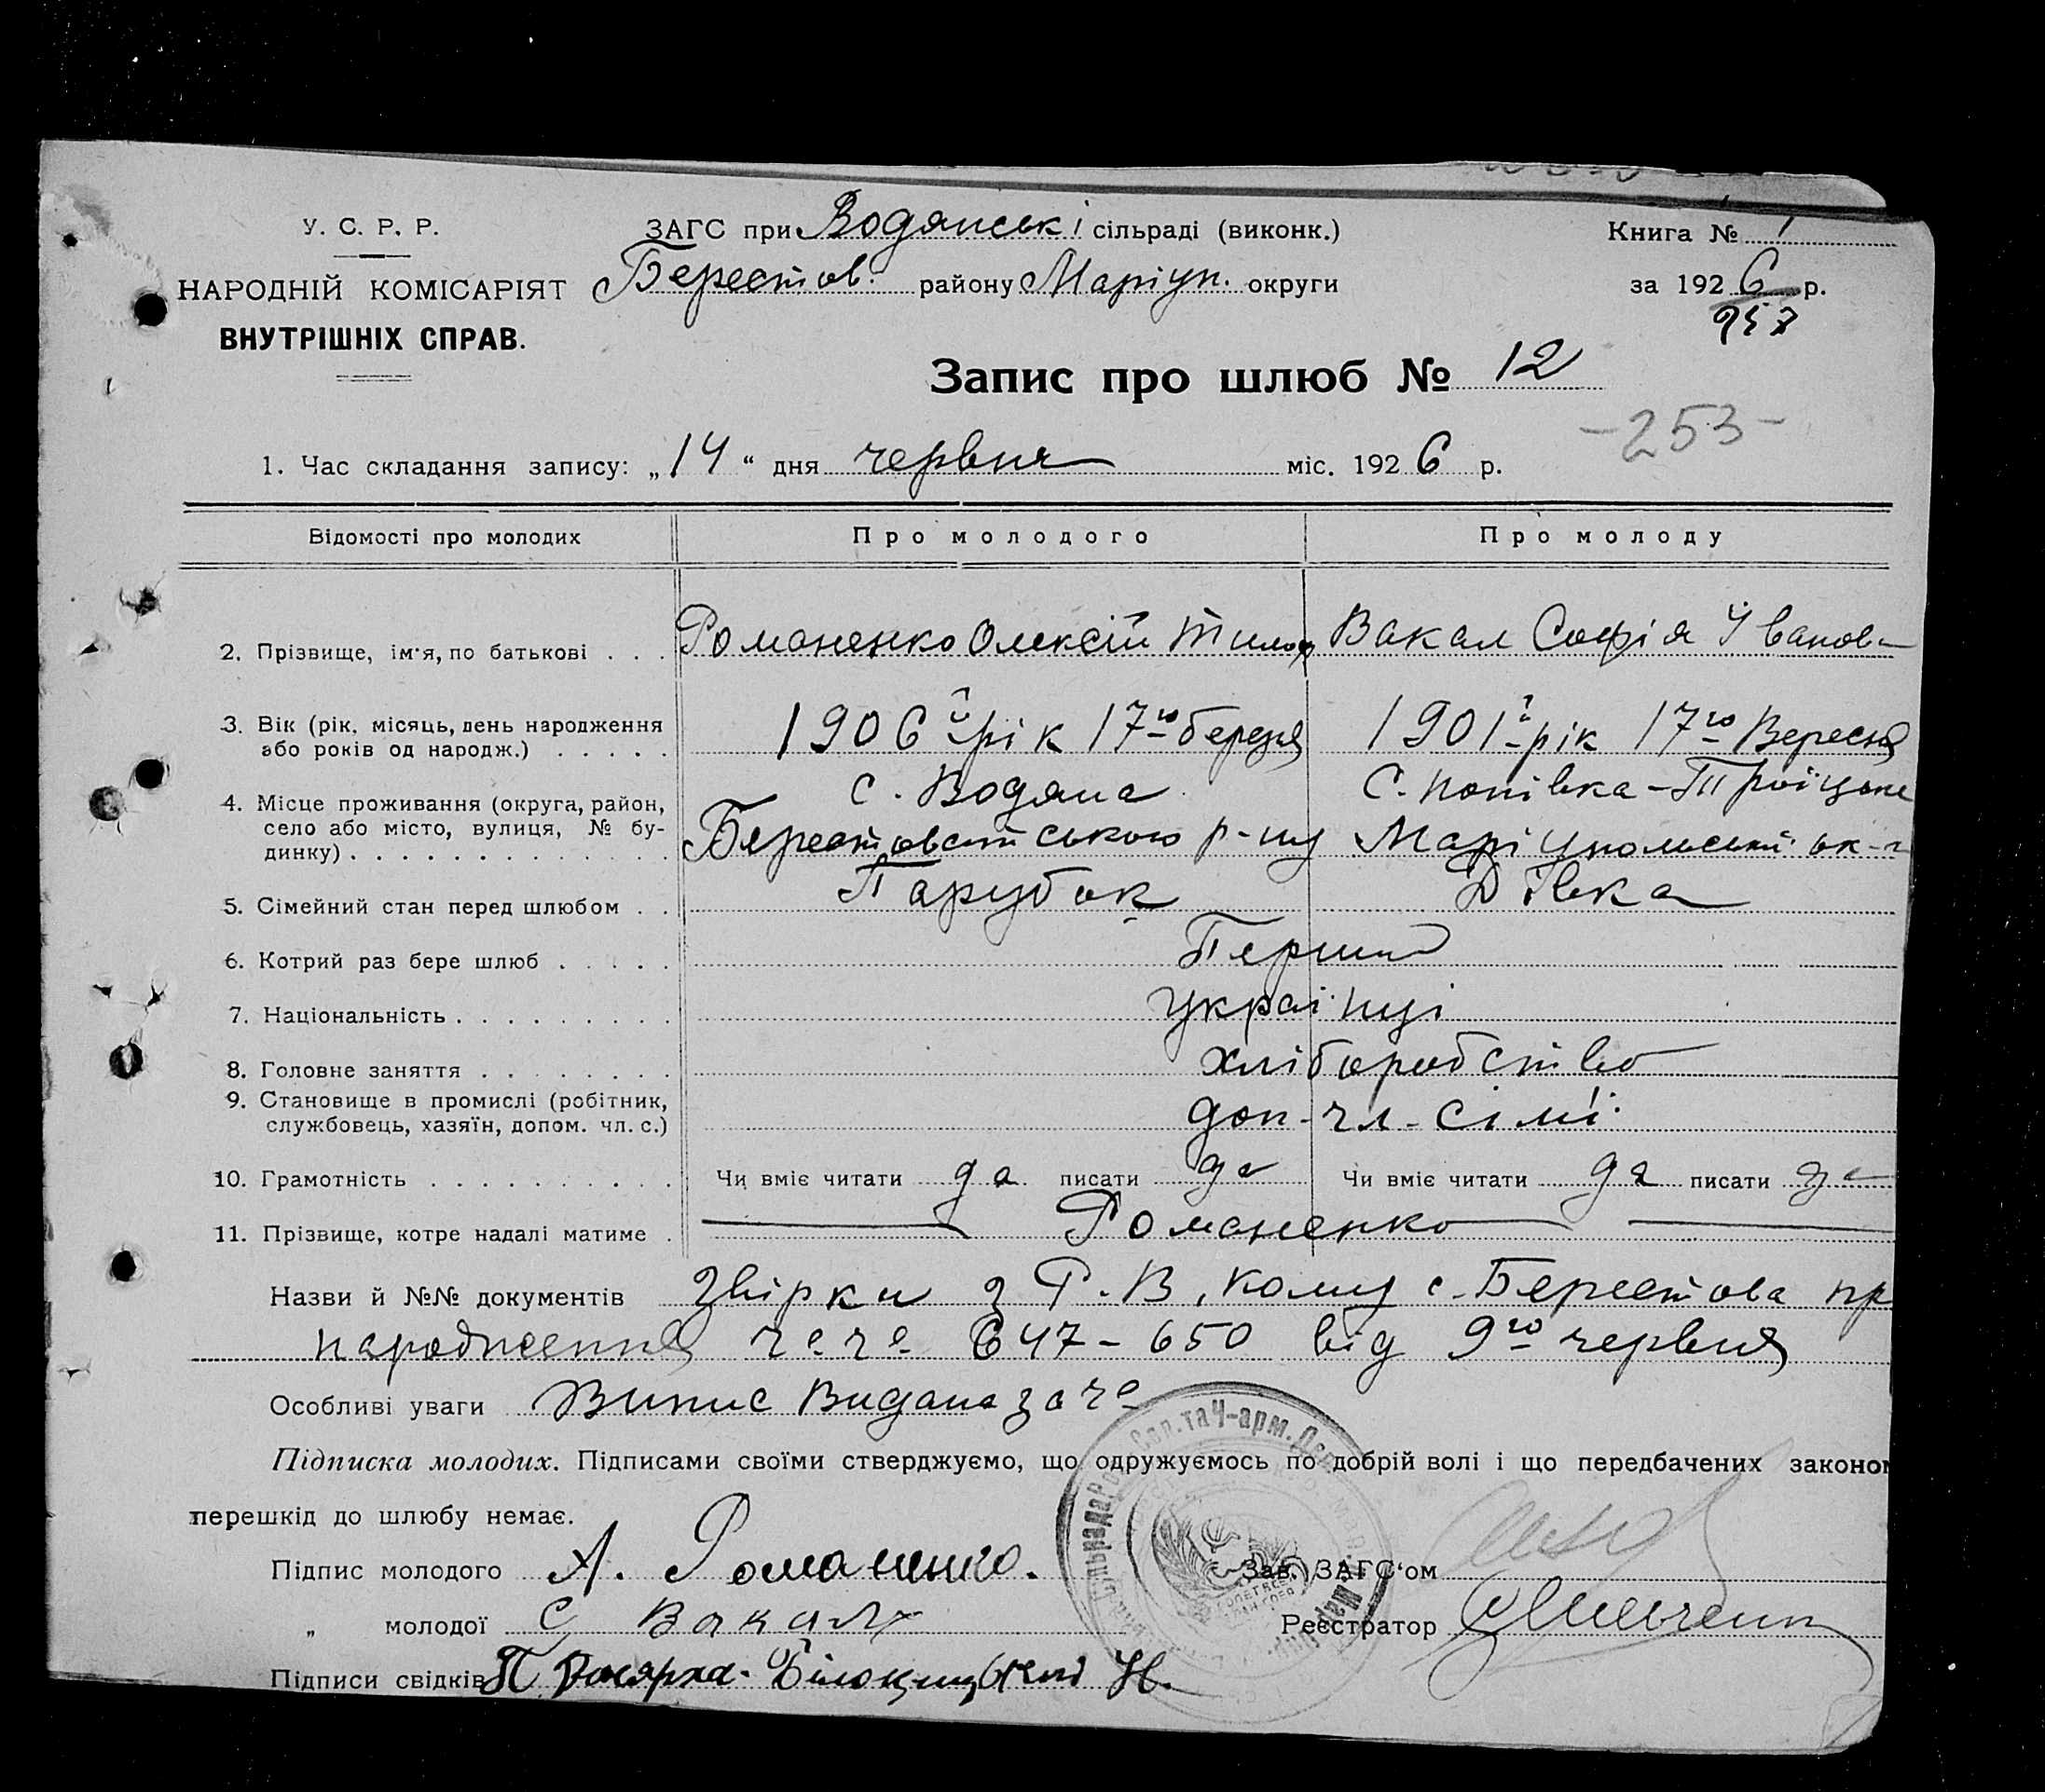 У. С. Р. Р.
ЗАГС при Водянські сільраді (виконк.)
Книга № 1
НАРОДНІЙ КОМІСАРІЯТ
Берестов. району Маріуп. округи
за 1926 р.
ВНУТРІШНІХ СПРАВ.
Запис про шлюб № 12
-253-
1. Час складання запису: „14“ дня червня міс. 1926 р.
Відомості про молодих
Про молодого
Про молоду
2. Прізвище, ім'я, по батькові . . .
Романенко Олексій
Вакал Софія Іванов-
3. Вік (рік, місяць, день народження або років од народж.) . . . . .
1906й рік 17го березня
1901й рік 17го Вересня
4. Місце проживання (округа, район, село або місто, вулиця, № будинку) . . . . . . . . . . . . .
с. Водяна
р-ну
С. Попівка-Троїцьке
5. Сімейний стан перед шлюбом . .
Парубок
Дівка
6. Котрий раз бере шлюб . . . . .
Перший
7. Національність . . . . . . . . .
українці
8. Головне заняття . . . . . . . .
хліборобство
9. Становище в промислі (робітник, службовець, хазяїн, допом. чл. с.)
доп-чл-сімї
10. Грамотність . . . . . . . . . .
Чи вміє читати да писати да
Чи вміє читати да писати да
11. Прізвище, котре надалі матиме .
Романенко
Назви й №№ документів звірки з Р.В. кому с. Берестова пр
народження 647-650 від 9го червня
Особливі уваги Випис Видана за
Підписка молодих. Підписами своїми стверджуємо, що одружуємось по добрій волі і що передбачених законом
перешкід до шлюбу немає.
Підпис молодого А. Романенко.
Зав. ЗАГС'ом
„ молодої С Вакал
Реєстратор
Підписи свідків П.